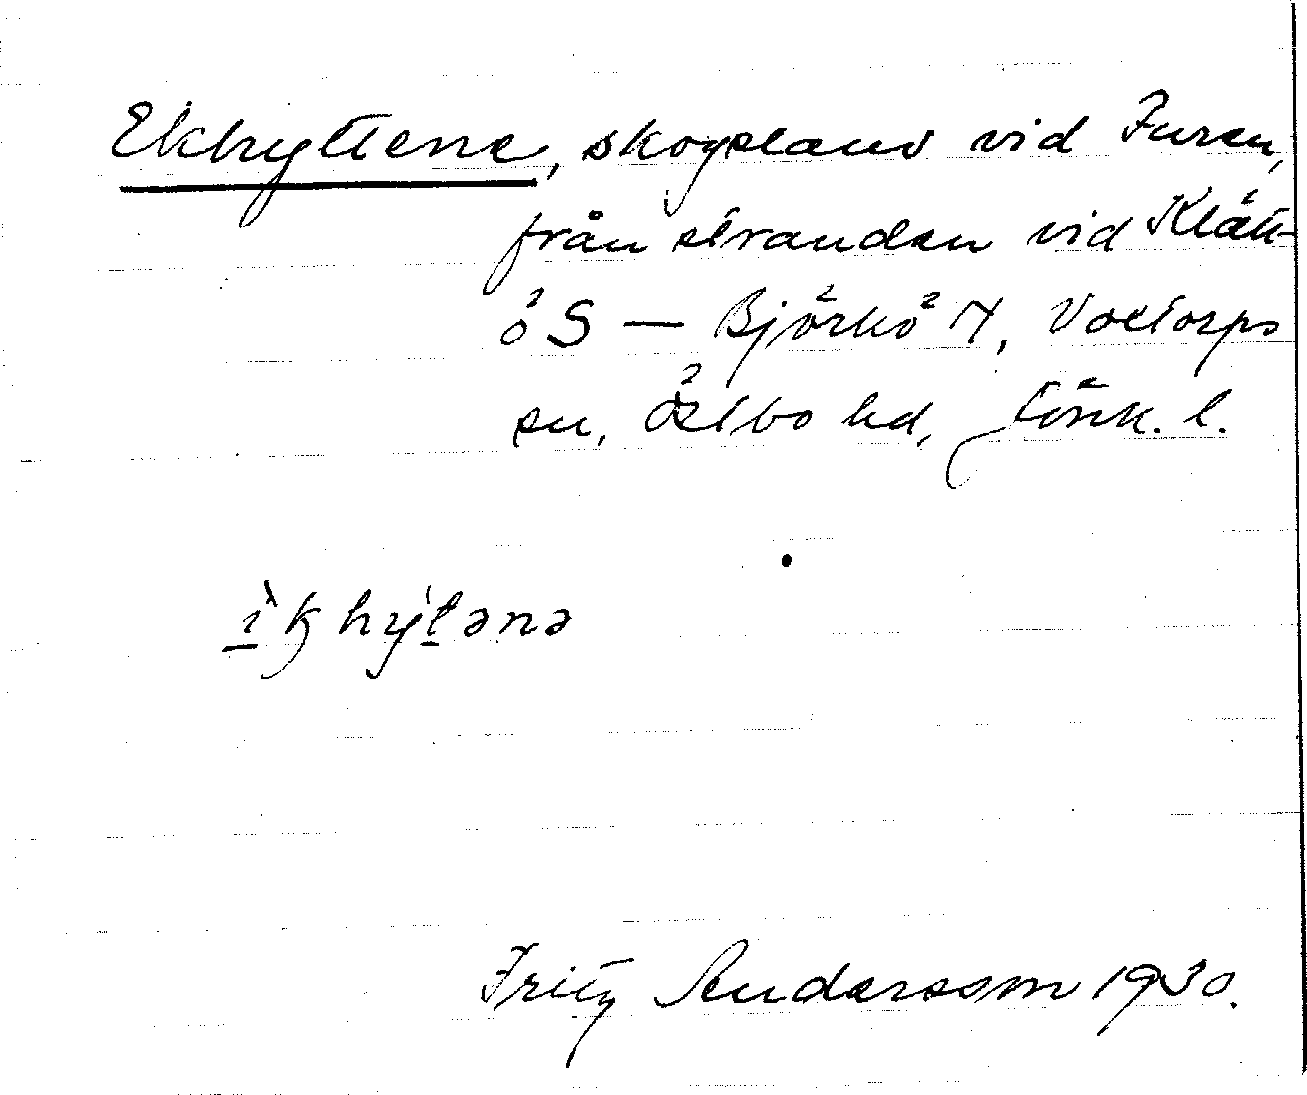 Ekhyttene, skogsland vid Furen,
från stranden vid Klätt-
ö S — Björkö N, Voxtorps
sn, Östbo hd, Jönk. l.
ìk hy̆tənə
Fritz Andersson 1930.